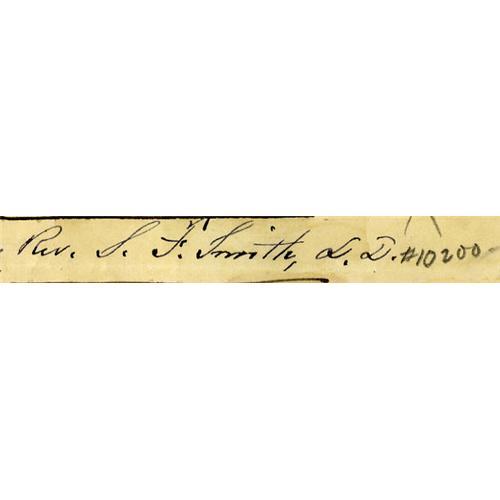 Rev. S. F. Smith, D. D. #10200